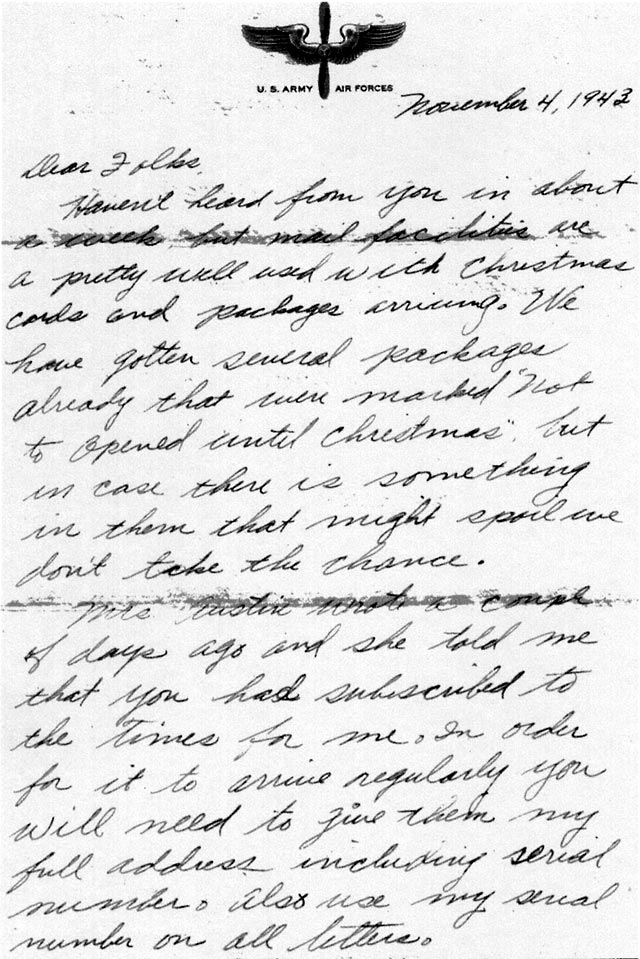 U. S. ARMY AIR FORCES
November 4, 1943
Dear Folks,
Haven't heard from you in about
a week but mail facilities are
a pretty well used with Christmas
cards and packages arriving. We
have gotten several packages
already that were marked "Not
to opened until Christmas", but
in case there is something
in them that might spoil we
don't take the chance.
Mrs Austin wrote a couple
of days ago and she told me
that you had subscribed to
the Times for me. In order
for it to arrive regularly you
will need to give them my
full address including serial
number. Also use my serial
number on all letters.